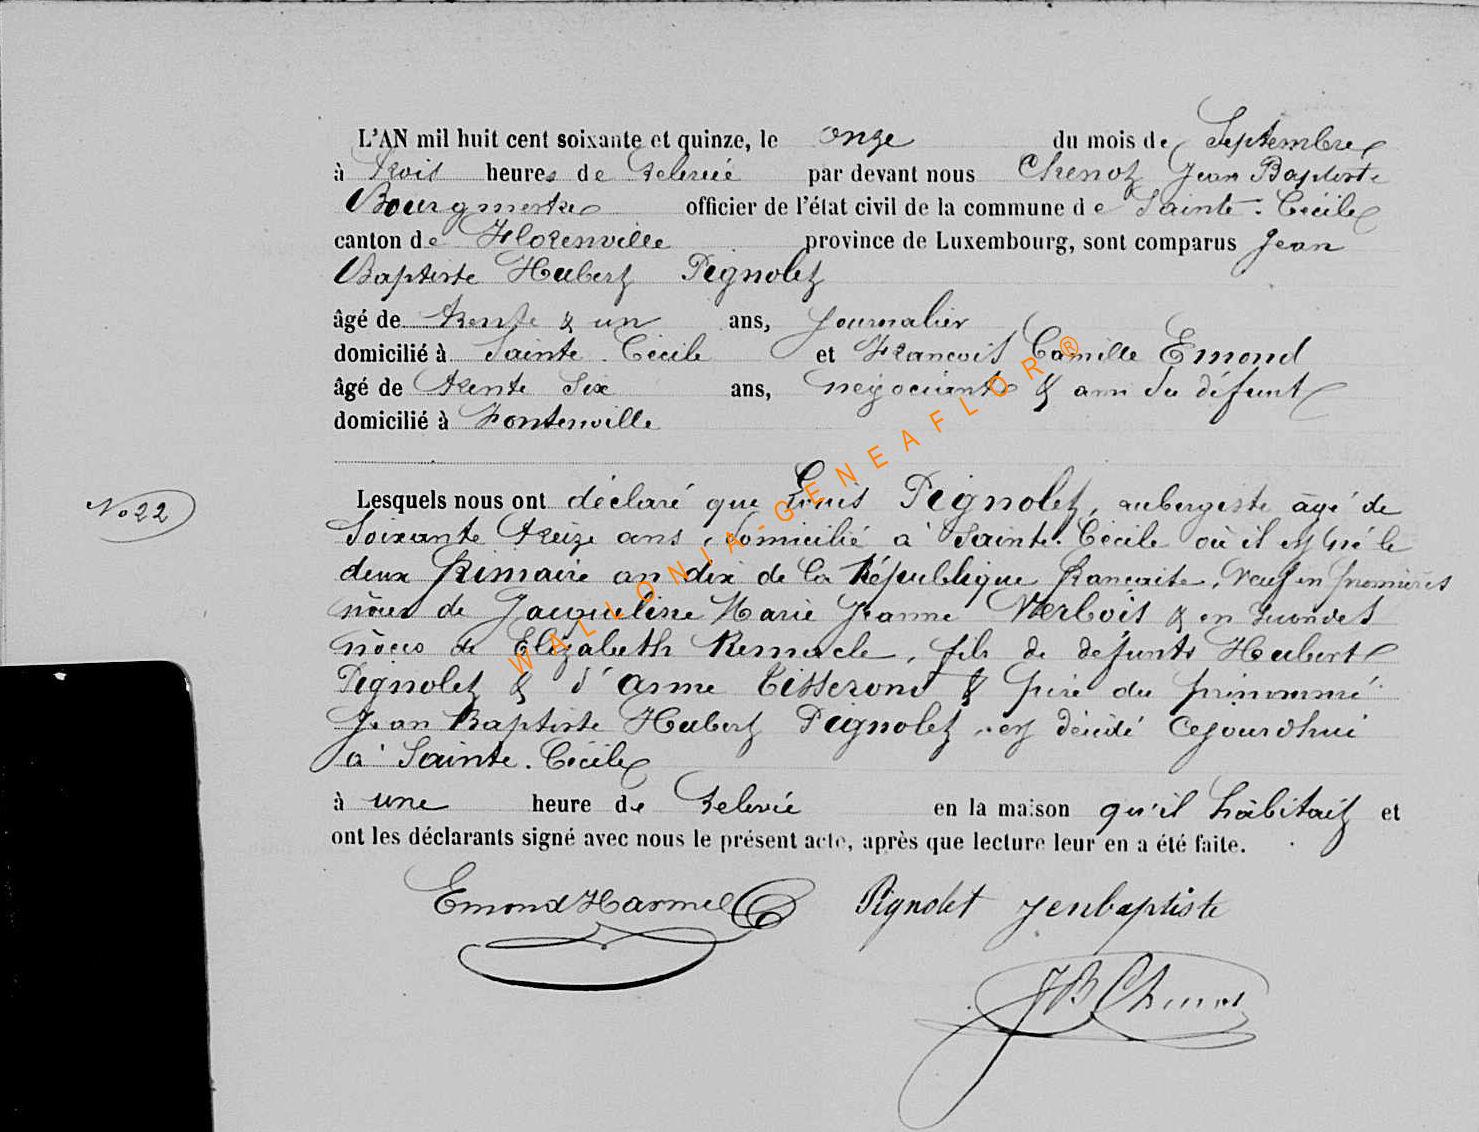 L'AN mil huit cent soixante et quinze, le onze du mois de Septembre
à trois heures de relevée par devant nous Chenot Jean Baptiste
Bourgmestre officier de l'état civil de la commune de Sainte-Cécile
canton de Florenville province de Luxembourg, sont comparus Jean
Baptiste Hubert Pignolet
âgé de trente & un ans, journalier
domicilié à Sainte-Cécile et François Camille Emond
âgé de trente six ans, négociant & ami du défunt
domicilié à Fontenoille
Lesquels nous ont déclaré que Louis Pignolet, aubergiste âgé de
No 22
soixante treize ans, domicilié à Sainte-Cécile où il est né le
deux frimaire an dix de la République française, veuf en premières
nôces de Jacqueline Marie Jeanne Werbois & en secondes
nôces de Elizabeth Remacle, fils de défunts Hubert
Pignolet & d'Anne Tisserond & père du prénommé
Jean Baptiste Hubert Pignolet, est décédé cejourdhui
à Sainte-Cécile
à une heure de relevée en la maison qu'il habitait et
ont les déclarants signé avec nous le présent acte, après que lecture leur en a été faite.
Emond Harmel Pignolet Jenbaptiste
JB Chenot
WALLONIA-GENEAFLOR®